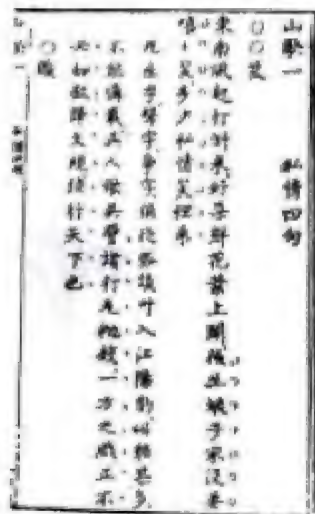 山歌一　私情四句
○○笑
東南風起打斜來好朵鮮花葉上開後生娘子家沒要
嘻〻笑多少私情笑裡來
凡生字聲字爭字俱從俗談叶入江陽韻此類甚多
不能備載吳人歌吳譬諸打瓦拋錢一方之戲正不
必如欽降文規須行天下也
○睃